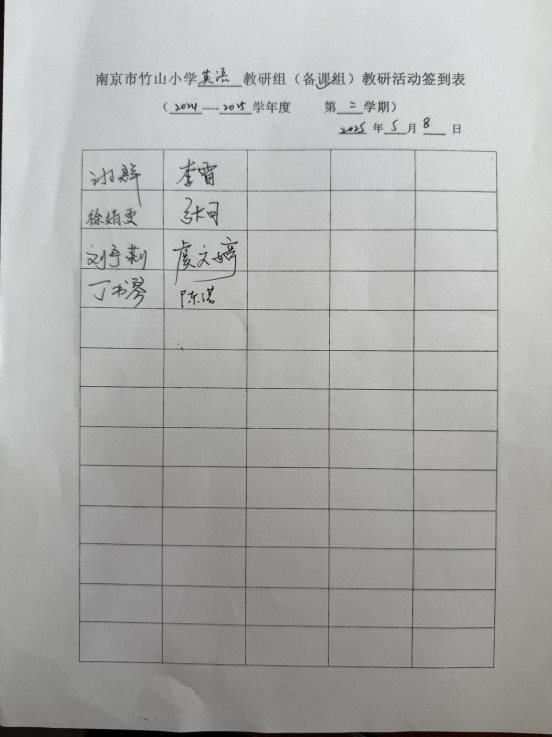 南京市竹山小学英语教研组（备课组）教研活动签到表
（2024----2025学年度 第二学期）
2025年5月8日
谢群 李霄
徐婧雯 张可
刘予莉 虞文婷
丁书琴 陈洁